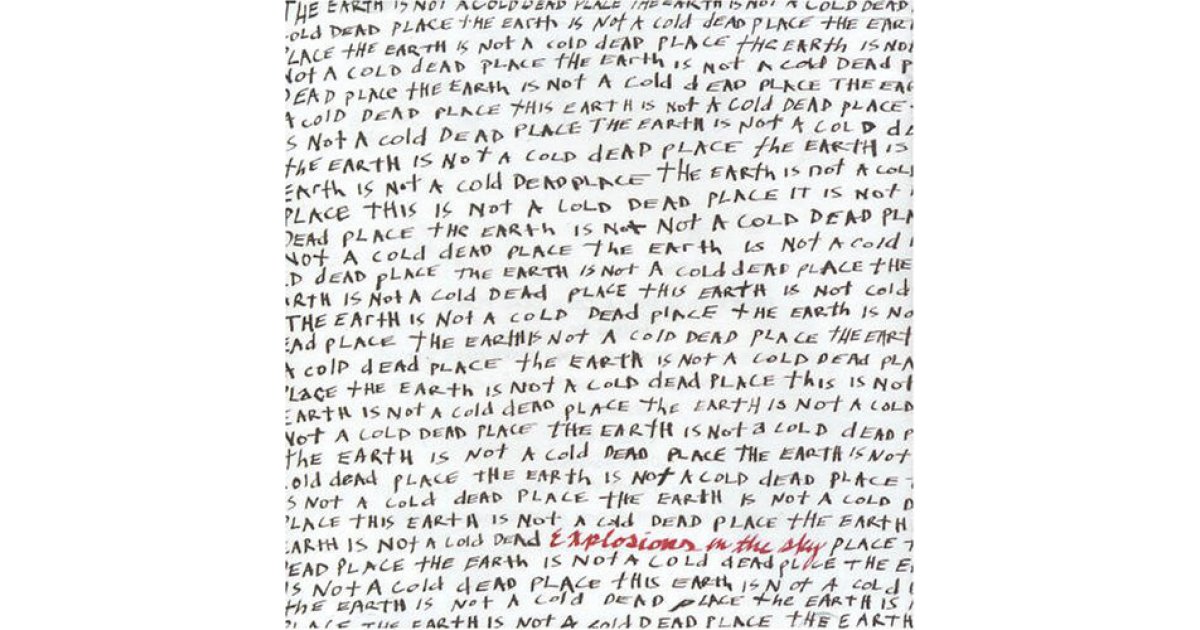 THE EARTH IS NOT A COLD DEAD PLACE THE EARTH IS NOT A COLD DEAD
OLD DEAD PLACE tHE EARth IS Not A cold dEAD PLACE tHE EAR
LACE tHE EARtH IS Not A cold dEAD PLACE tHE EARth IS NOt
Not A COLD dEAD PLACE tHE EARth IS not A cold DEAd P
DEAD plAce tHE EARth IS NOT A Cold dEAD PLACE THE EA
A COlD DEAD PLACE tHIS EARTH IS Not A Cold DEAD plACE
S Not A cold DEAD PLACE THE EARtH IS Not A COLD dE
tHE EARTH IS Not A COLD dEAD PLACE the EARTH IS
EARth IS Not A cold DEAD PLACE tHE EARth IS not A COL
PLACE THIS IS Not A COLD DEAD PLACE IT IS NOt
DEAd PLACE tHE EARth IS Not Not A COLD DEAD PLA
Not A COLd dEAD PLACE The EArth Is Not A Cold
D dEAD pLACE THE EARTH IS Not A COLd dEAD pLACE tHE
RTH IS Not A Cold DEAd PLACE tHIS EARTH IS Not Cold
THE EArtH IS Not A COLD DEAd plACE tHE EARth IS No
EAd PLACE tHE EARtH IS NOt A COlD DEAD PLACE tHE EARt
A COlD dEAd PLACE the EARTH IS NOt A COLD DEAd PLA
LACE tHE EARth IS NOt A COLD dEAd PLACE this IS Not
EARTH IS Not A Cold dEAD pLACE the EARTH IS Not A COLD
Not A COLD DEAD PLACE THE EARTH IS Not a COLD dEAD P
the EARTH IS Not A Cold DEAD PLACE THE EARTH IS Not
old deAd PLACE tHE EARth IS Not A COLD dEAD PLACE
S NOt A Cold dEAD PLACE tHE EARTH IS NOt A COLD D
LACE THIS EARtH IS Not A cold DEAD PLACE tHE EARTH
ARTH IS Not A Cold DEAd Explosions in the Sky PLACE T
EAD PLACE tHE EARth IS NOt A COLd dEAd pLACE tHE E
IS Not A Cold dEAD PLACE tHIS EARth IS Not A COLd
tHE EARtH IS Not A Cold DEAD PLACE tHE EARTH IS
PLACE THE EARTH IS Not A cold DEAD PLACE tHE EARTH